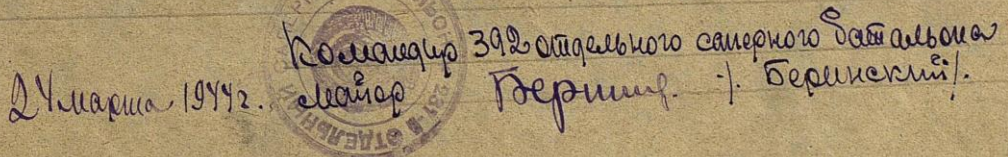 Командир 392 отдельного саперного батальона
24 марта 1944 г. майор /. Беринский/.